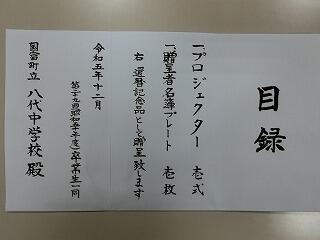 目録
一、プロジェクター 壱式
一、贈呈者名簿プレート 壱枚
右 還暦記念品として贈呈致します
令和五年十二月
第二十九回(昭和五十年度)卒業生一同
国富町立 八代中学校 殿